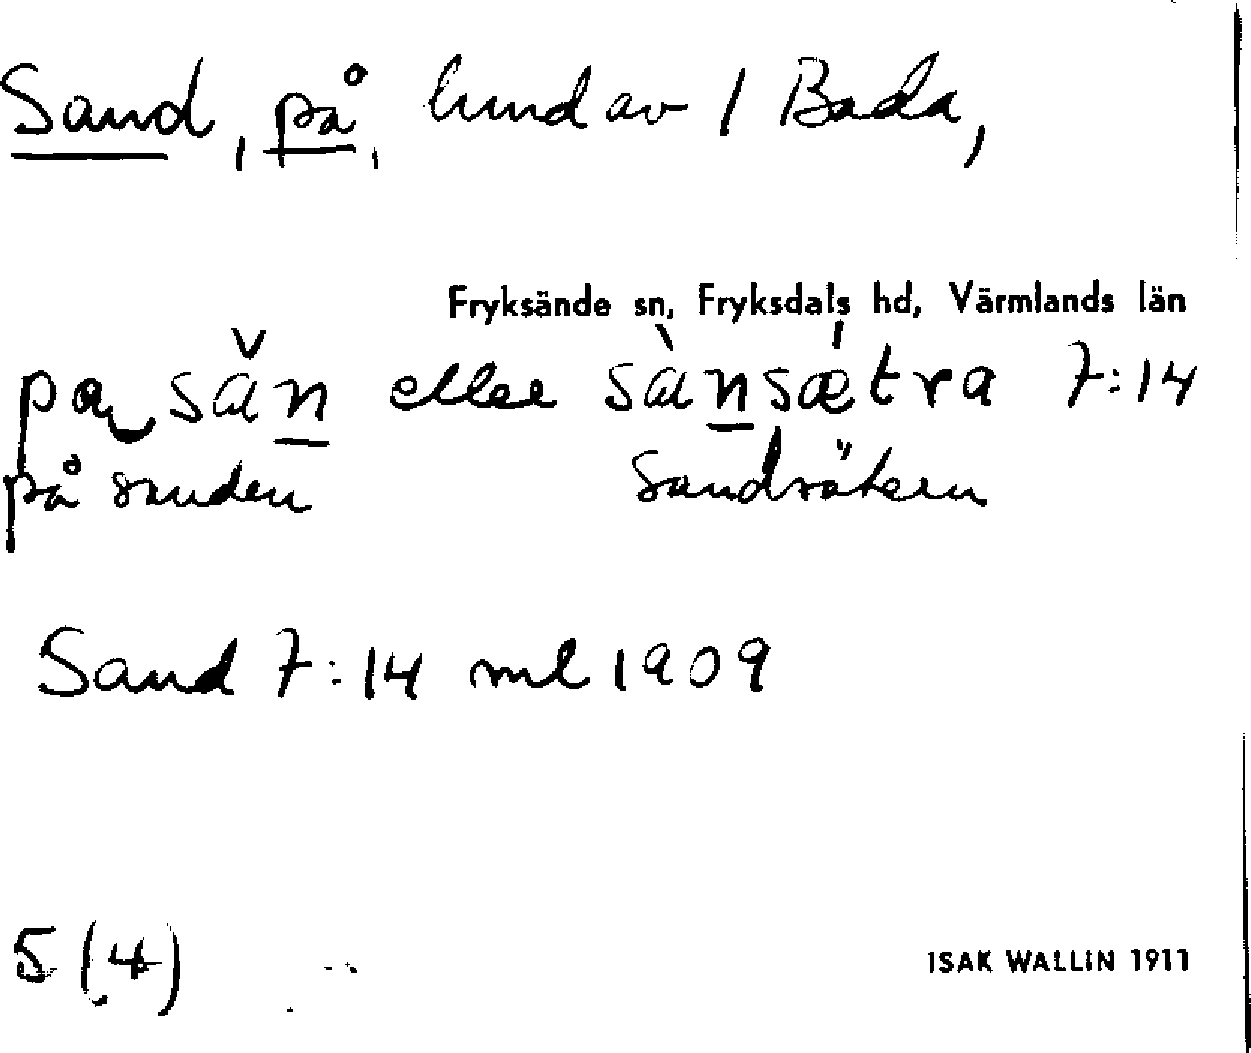 Sand, på, hmd av 1 Bada,
Fryksände sn, Fryksdals hd, Värmlands län
pa sǎn eller sànsætra 7:14
på sanden Sandsätern
Sand 7:14 ml 1909
5 (4)
ISAK WALLIN 1911